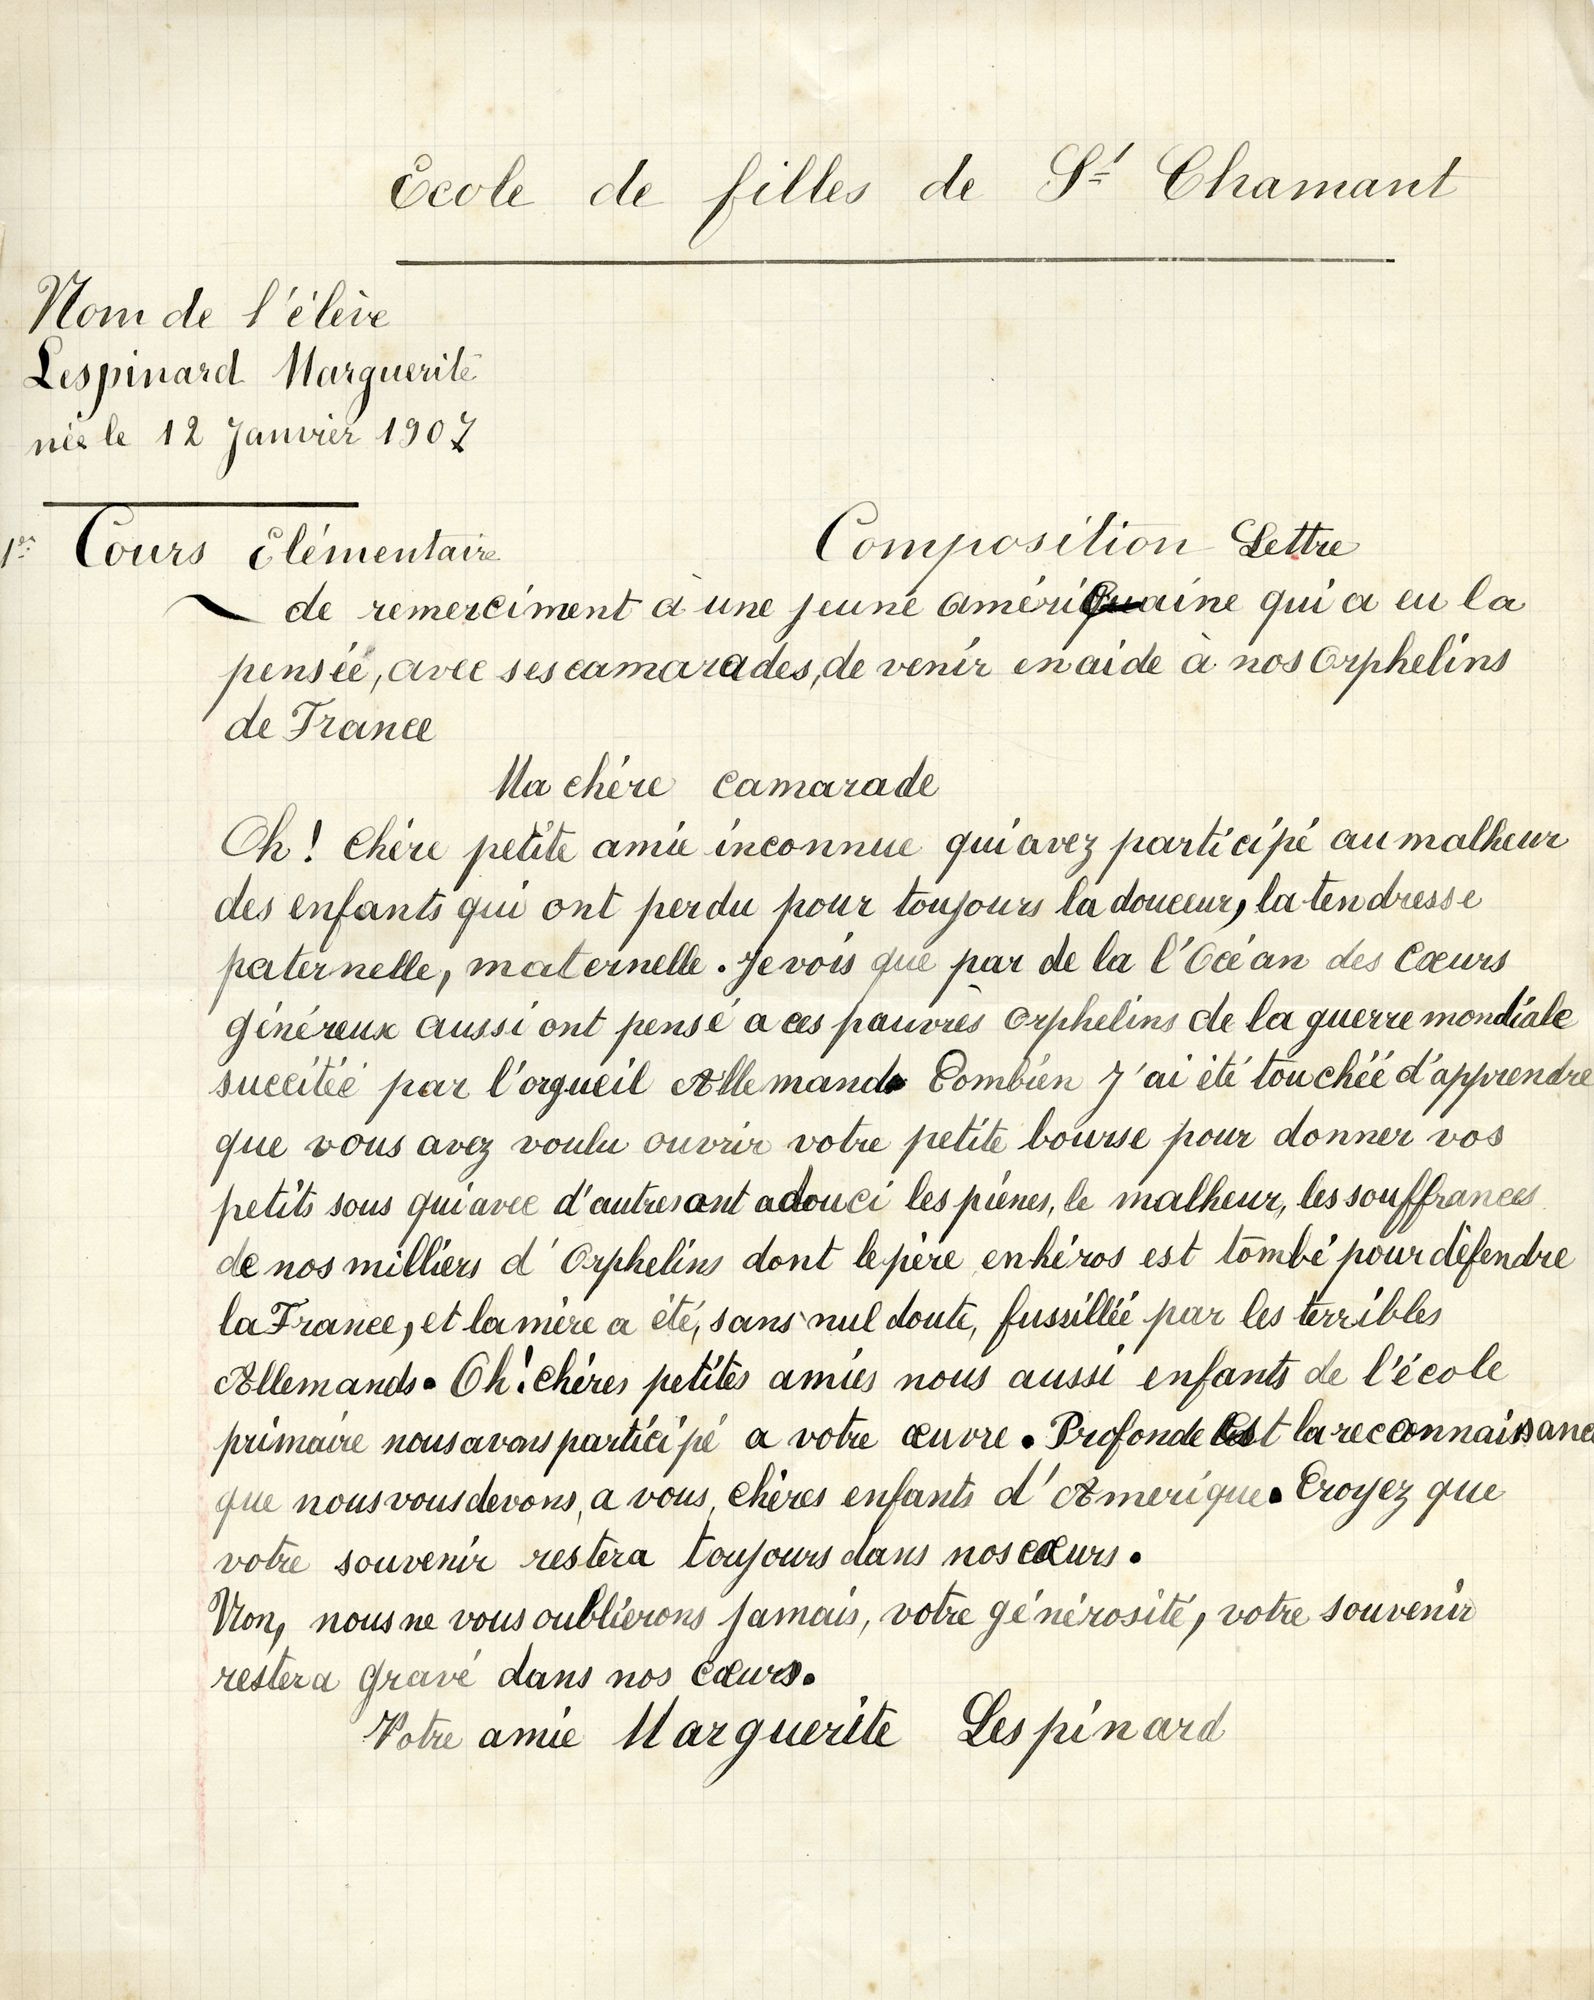 Ecole de filles de St Chamant
Nom de l'élève
Lespinard Marguerite
née le 12 Janvier 1907
1er Cours Elémentaire
Composition Lettre
de remerciment à une jeune amériquaine qui a eu la
pensée, avec ses camarades, de venir en aide à nos Orphelins
de France
Ma chère camarade
Oh! Chère petite amie inconnue qui avez participé au malheur
des enfants qui ont perdu pour toujours la douceur, la tendresse
paternelle, maternelle. Je vois que par de la l'Océan des Cœurs
généreux aussi ont pensé a ces pauvres Orphelins de la guerre mondiale
succitée par l'orgueil Allemand. Combien j'ai été touchée d'apprendre
que vous avez voulu ouvrir votre petite bourse pour donner vos
petits sous qui avec d'autres ont adouci les piènes, le malheur, les souffrances
de nos milliers d'Orphelins dont le père en héros est tombé pour défendre
la France, et la mère a été, sans nul doute, fussillée par les terribles
Allemands. Oh! chères petites amies nous aussi enfants de l'école
primaire nous avons participé a votre œuvre. Profonde est la recconnaissance
que nous vous devons, a vous, chères enfants d'Amerique. Croyez que
votre souvenir restera toujours dans nos cœurs.
Non, nous ne vous oublierons jamais, votre générosité, votre souvenir
restera gravé dans nos cœurs.
Votre amie Marguerite Lespinard